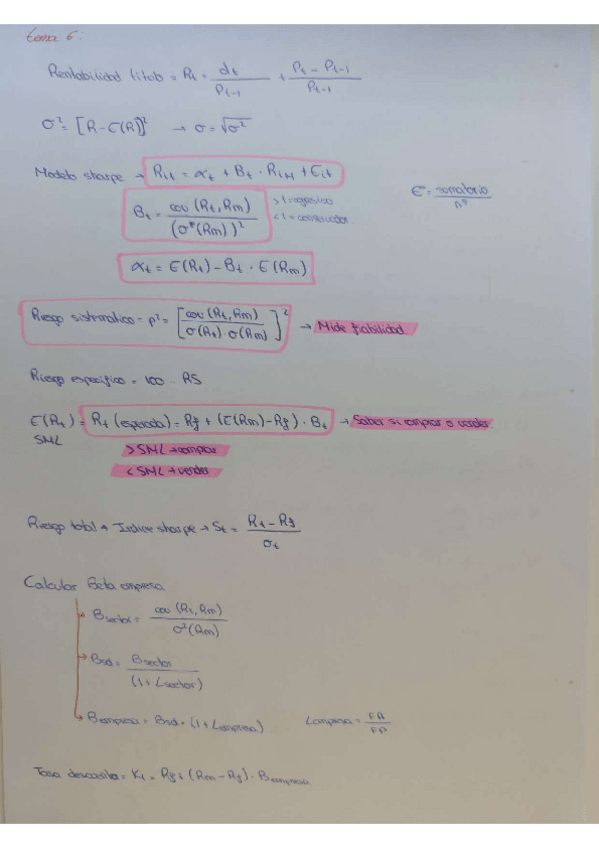 tema 6:
Rentabilidad título = Rt = dt / Pt-1 + Pt - Pt-1 / Pt-1
σ² = [R - E(R)]² → σ = √σ²
Modelo sharpe → Rit = αt + Bt · Rit + Eit
Bt = cov (Rt, Rm) / (σ²(Rm))² >1 = agresivo <1 = conservador
E = sumatorio / nº
αt = E(Rt) - Bt · E(Rm)
Riesgo sistematico = ρ² = [cov (Rt, Rm) / σ(Rt) · σ(Rm)]² → Mide fiabilidad.
Riesgo especifico = 100 - RS
E(Rt) = Rt (esperada) = Rf + (E(Rm) - Rf) · Bt → Saber si comprar o vender.
SML
> SML → comprar
< SML → vender
Riesgo total → Indice sharpe → St = Rt - Rf / σt
Calcular Beta empresa
Bsector = cov (Rt, Rm) / σ²(Rm)
Bsd = Bsector / (1 + Lsector)
Bempresa = Bsd · (1 + Lempresa) Lempresa = FA / FP
Tasa descuento = Kt = Rf + (Rm - Rf) · Bempresa